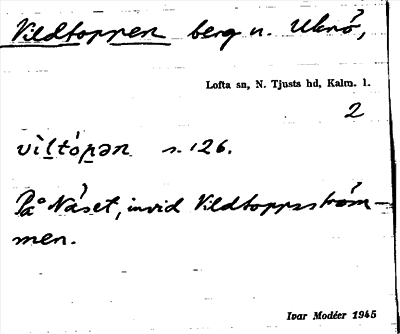 Vildtoppen berg n. Uknö,
Lofta sn, N. Tjusts hd, Kalm. l.
2
vìltópən s. 126.
På Näset, invid Vildtoppsström-
men.
Ivar Modéer 1945